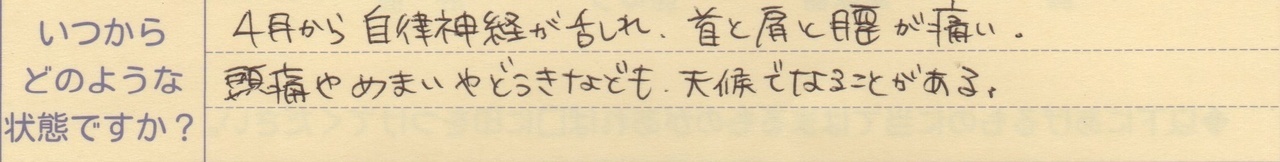 いつから
どのような
状態ですか？
4月から自律神経が乱れ、首と肩と腰が痛い。
頭痛やめまいやどうきなども、天候でなることがある。